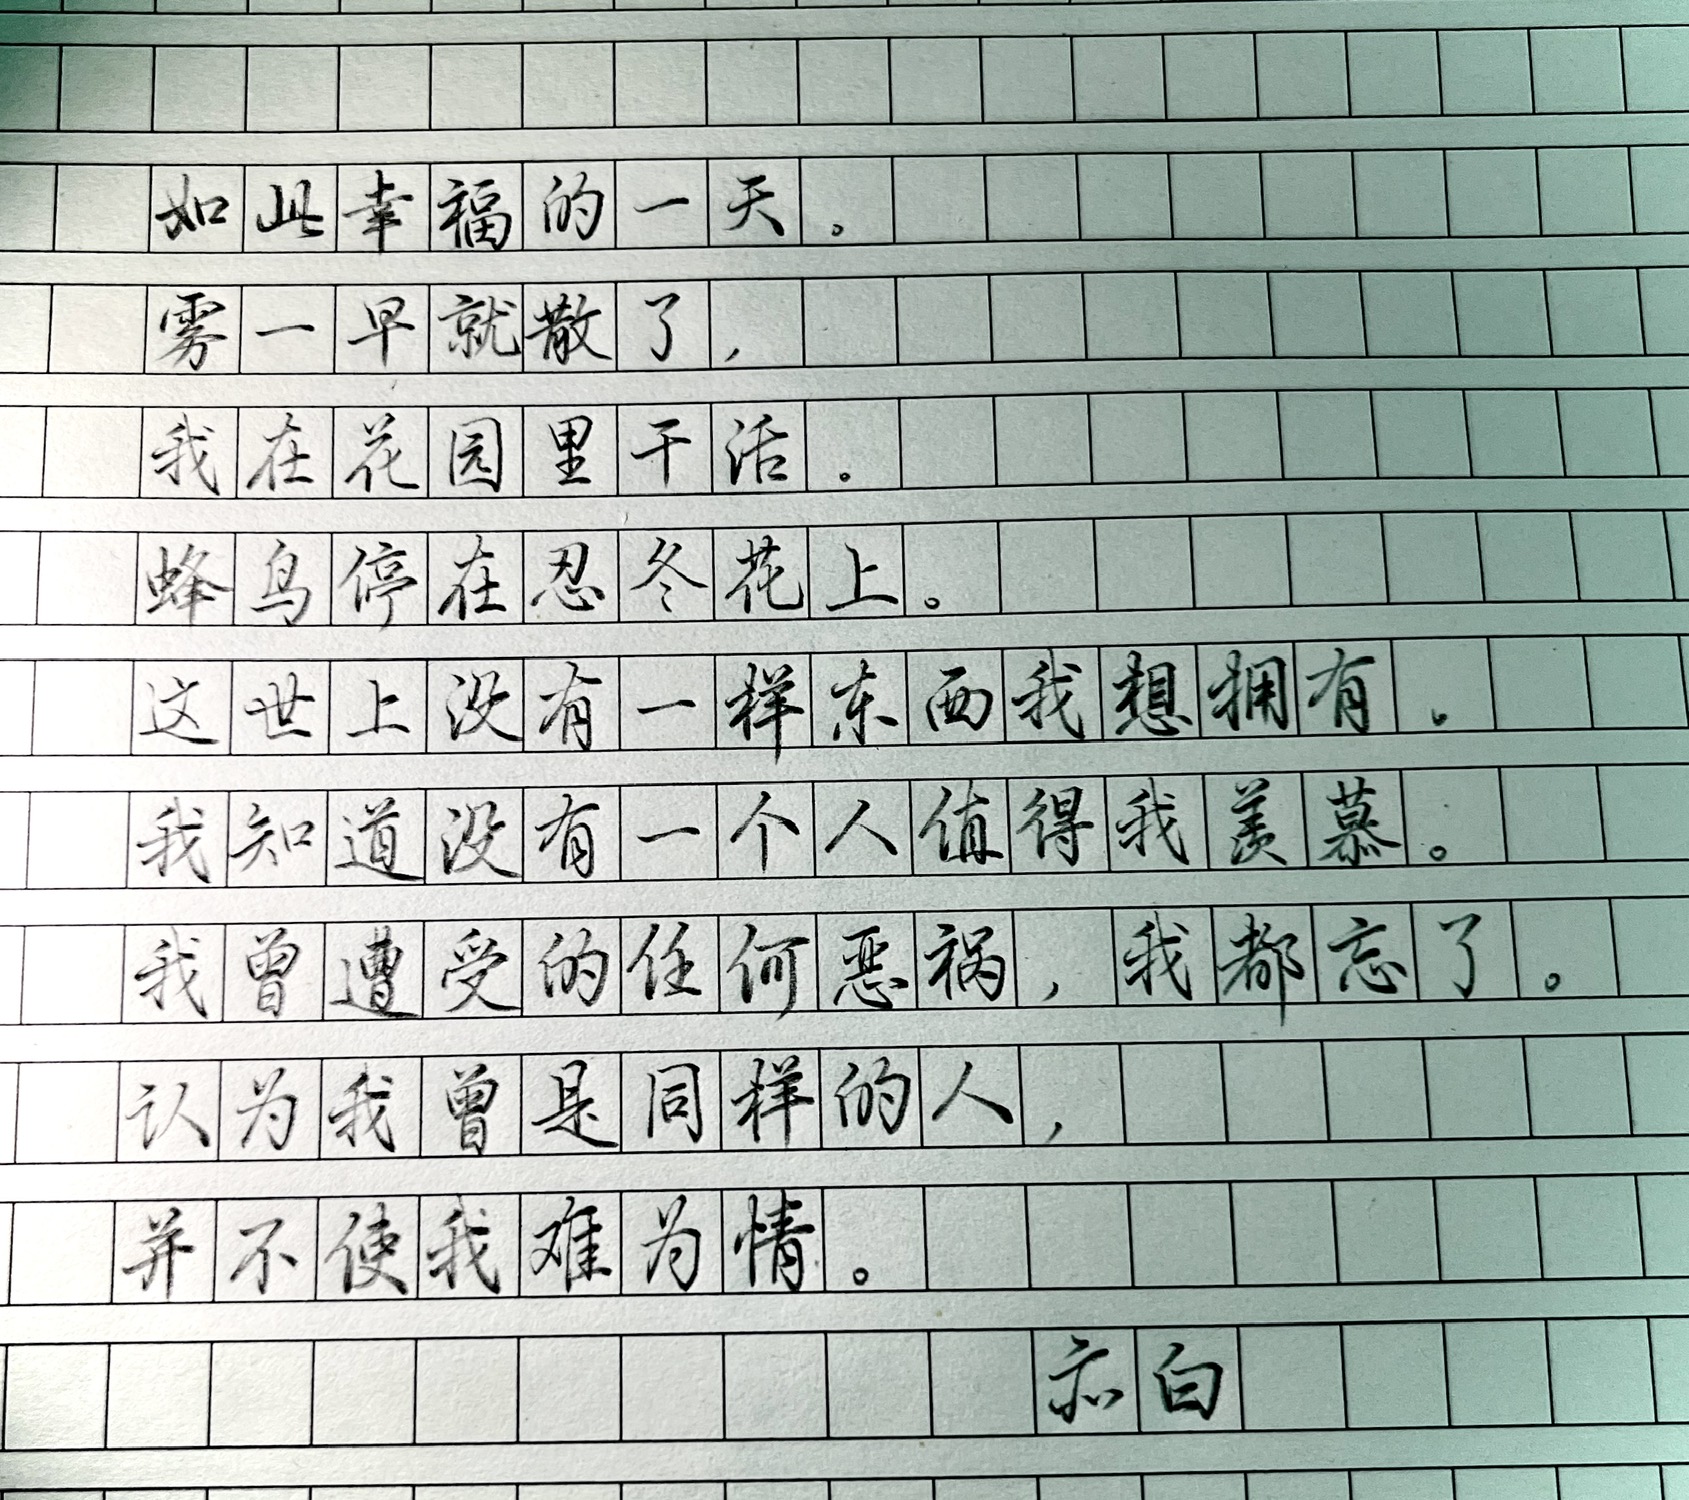 如此幸福的一天。
雾一早就散了,
我在花园里干活。
蜂鸟停在忍冬花上。
这世上没有一样东西我想拥有。
我知道没有一个人值得我羡慕。
我曾遭受的任何恶祸,我都忘了。
认为我曾是同样的人,
并不使我难为情。
白